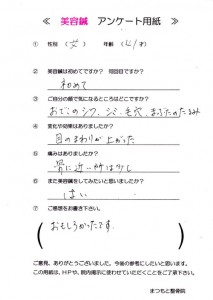 ≪ 美容鍼 アンケート用紙 ≫
① 性別 (女) 年齢 (61才)
② 美容鍼は初めてですか? 何回目ですか?
初めて
③ ご自分の顔で気になるところはどこですか?
おでこのシワ、シミ、毛穴、まぶたのたるみ
④ 変化や効果はありましたか?
目のまわりが上がった
⑤ 痛みはありましたか?
骨に近い所は少し
⑥ また美容鍼をしてみたいと思いましたか?
はい
⑦ ご感想をお書き下さい。
(おもしろかったです。)
ご意見、ありがとうございました。今後の参考にしたいと思います。
この用紙は、HPや、院内掲示に使わせていただくことをご了承下さい。
まつもと整骨院